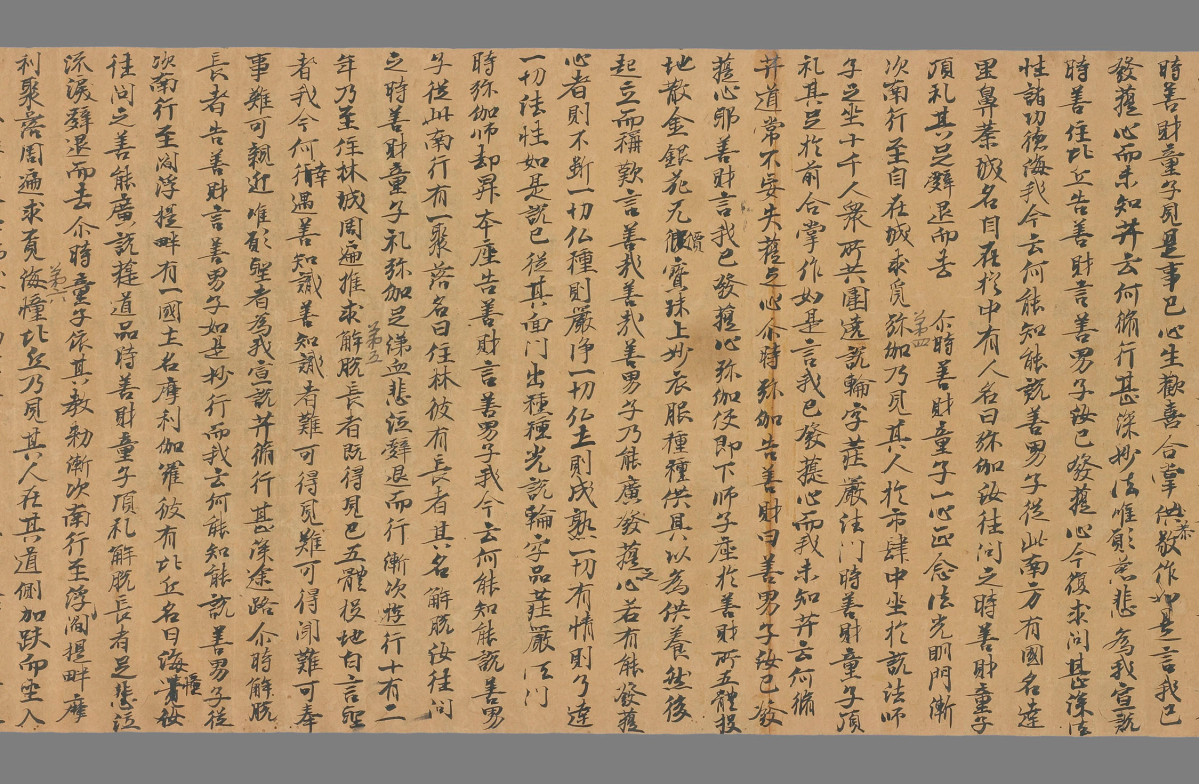 時善財童子見是事已心生歡喜合掌恭敬作如是言我已
發菩提心而未知菩薩云何脩行甚深妙法唯願慈悲為我宣說
時善住比丘告善財言善男子汝已發菩提心今復求問甚深法
性諸功德海我今云何能知能說善男子從此南方有國名達
里鼻荼城名自在於中有人名曰弥伽汝往問之時善財童子
頂礼其足辭退而去 尒時善財童子一心正念法光明門漸
第四
次南行至自在城求覓弥伽乃見其人於市肆中坐於說法師
子之坐十千人衆所共圍遶說輪字莊嚴法門時善財童子頂
礼其足於前合掌作如是言我已發菩提心而我未知菩薩云何脩
菩道常不安失菩提之心尒時弥伽告善財曰善男子汝已發
菩提心耶善財言我已發菩提心弥伽便即下師子座於善財所五體投
地散金銀花无價寶珠上妙衣服種種供具以為供養然後
起立而稱歎言善哉善哉善男子乃能廣發菩提之心若有能發菩提
心者則不斷一切仏種則嚴浄一切仏土則成熟一切有情則了達
一切法性如是說已從其面門出種種光說輪字品莊嚴法門
時弥伽師却昇本座告善財言善男子我今云何能知能說善男
子從此南行有一聚落名曰住林彼有長者其名解脫汝往問
之時善財童子礼弥伽足涕血悲泣辭退而行漸次遊行十有二
第五
年乃至住林城周遍推求解脫長者既得見已五體投地白言聖
者我今何幸得遇善知識善知識者難可得見難可得聞難可奉
事難可親近唯願聖者為我宣說菩脩行甚深途路尒時解脫
長者告善財言善男子如是妙行而我云何能知能說善男子從
次南行至閻浮提畔有一國土名摩利伽羅彼有比丘名曰海幢汝
往問之善能廣說菩提道品時善財童子頂礼解脫長者足悲泣
流淚辭退而去尒時童子依其教勑漸次南行至浮閻提畔摩
第六
利聚落周遍求覓海幢比丘乃見其人在其道側加趺而坐入